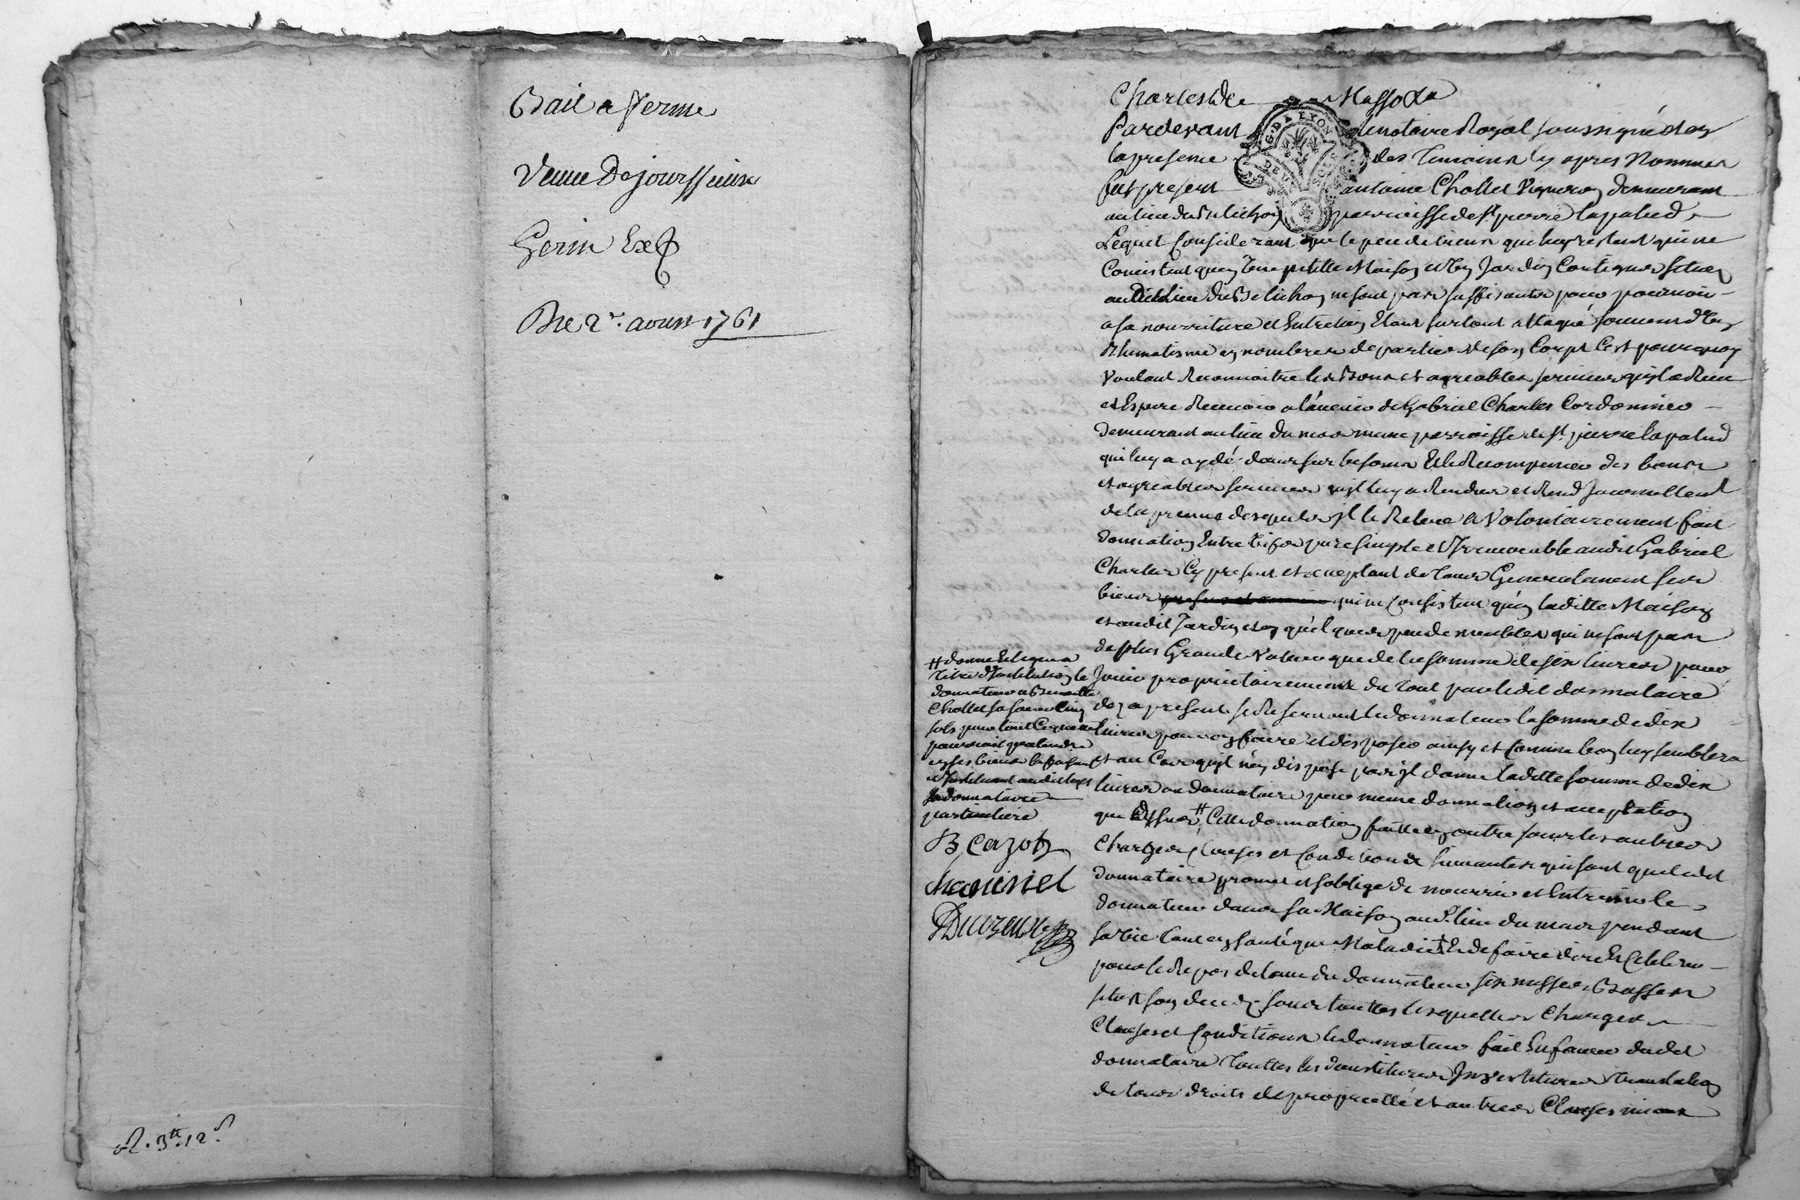 Bail a ferme
Veuve Dejourssieux
Gerin Exp
Du 2e. avril 1761
3tt. 12s
Charles
Pardevant le notaire Royal soussigné et en
la presence des Temoins cy apres Nommés
fut present antoine Chollet Vigneron demeurant
au lieu du Belichon parroisse de st. pierre lapalud
Lequel Considerant que le peu de biens qui luy restent qui ne
Consistent qu'en Une petitte Maison et Un Jardin Contigus scitues
audit lieu du Belichon ne sont pas suffisants pour pourvoir
a sa nourriture et Entretien Etant surtout attaqué souvent d'Un
Rhumatisme en nombres de parties de son Corps C'est pourquoy
Voulant Reconnoitre les Bons et agreables services qu'il a Reçu
et Espere Recevoir a l'avenir de Gabriel Charles Cordonnier
demeurant au lieu du mas meme parroisse de st. pierre lapalud
qui luy a aydé dans ses besoins Et le Recompenser des bons
et agreables services qu'il luy a Rendus et Rend Journellement
de la preuve desquels il le Releve a Volontairement fait
donnation Entre Vifs pure simple et Irrevocable audit Gabriel
Charles Cy present et acceptant de tous Generalement ses
biens presents et avenir qui ne Consistent qu'en laditte Maison
et audit Jardin et en quelques peu de meubles qui ne sont pas
de plus Grande Valeur que de la somme de six livres pour
Jouir proprietairement du tout par ledit donnataire
des a present se Reservant le donnateur la somme de dix
livres pour en faire et disposer ainsy et Comme bon luy semblera
et au Cas qu'il n'en dispose pas il donne laditte somme de dix
livres au donnataire par meme donnation et acceptation
que dessus # Cette donnation faitte en outre sous les autres
Charges Clauses et Conditions suivantes qui sont que ledit
donnataire promet et s'oblige de nourrir et Entretenir le
donnateur dans sa Maison audt. lieu du mas pendant
sa vie tant en santé que Maladie Et de faire dire Et Celebrer
pour le Repos de l'ame du donnateur six messes Basses
sitot son deces sous touttes lesquelles Charges
Clauses et Conditions le donnateur fait En faveur dudit
donnataire touttes les demises Investitures translation
de tous droits de proprietté et autres Clauses
# donne et legue a
titre d'Institution le
donnateur a Benoitte
Chollet sa soeur Cinq
sols pour tout Ce qu'elle
pourroit pretendre
en ses biens la faisant
et Instituant audit legs
sa donnataire
particuliere
B Cazot